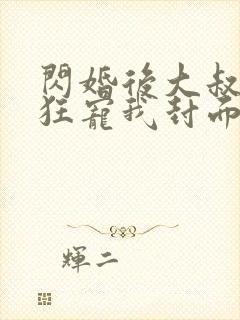 閃婚後大叔
狂寵我封面
輝二